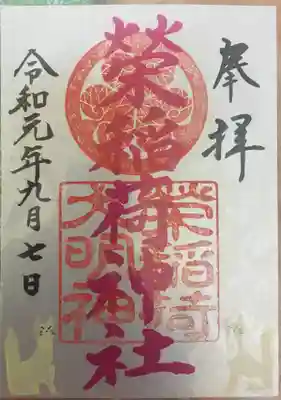 奉拝
榮稲荷神社
榮稲荷
大明神
令和元年九月七日